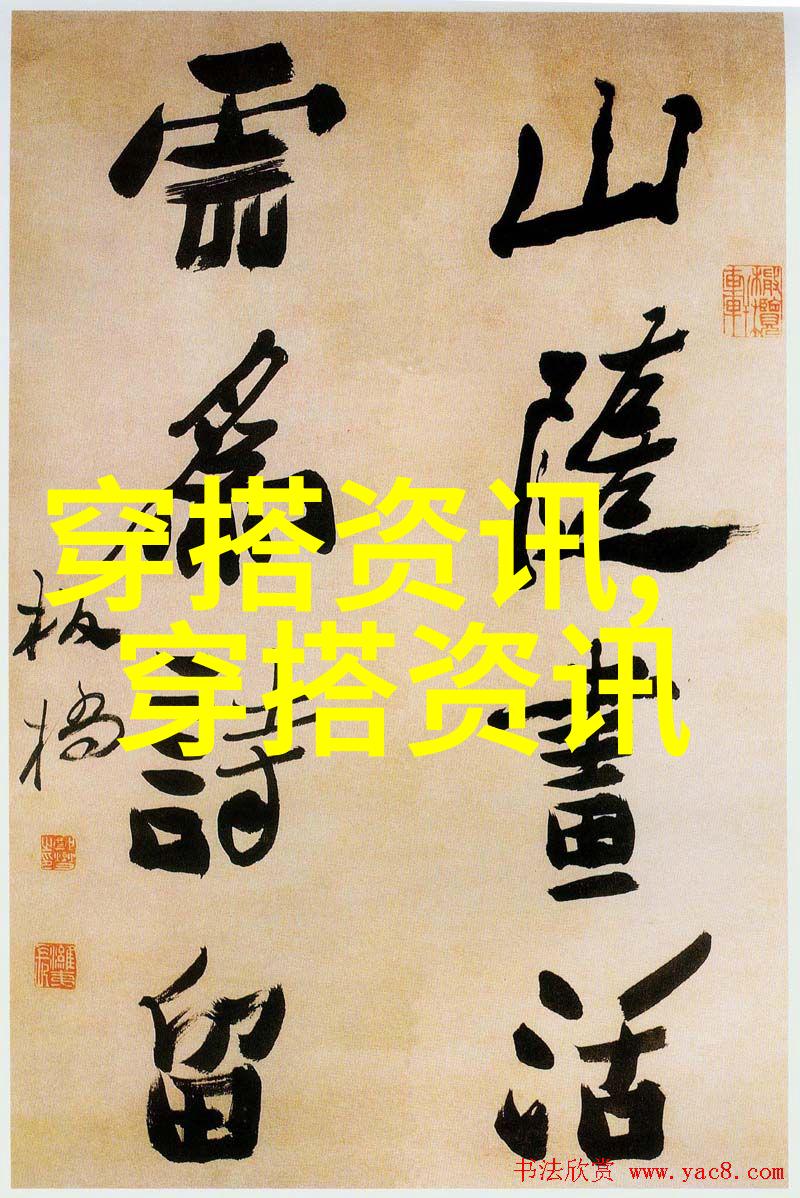 山隨畫活
雲爲詩留
板橋
穿搭资讯,
穿搭资讯
书法欣赏 www.yac8.com